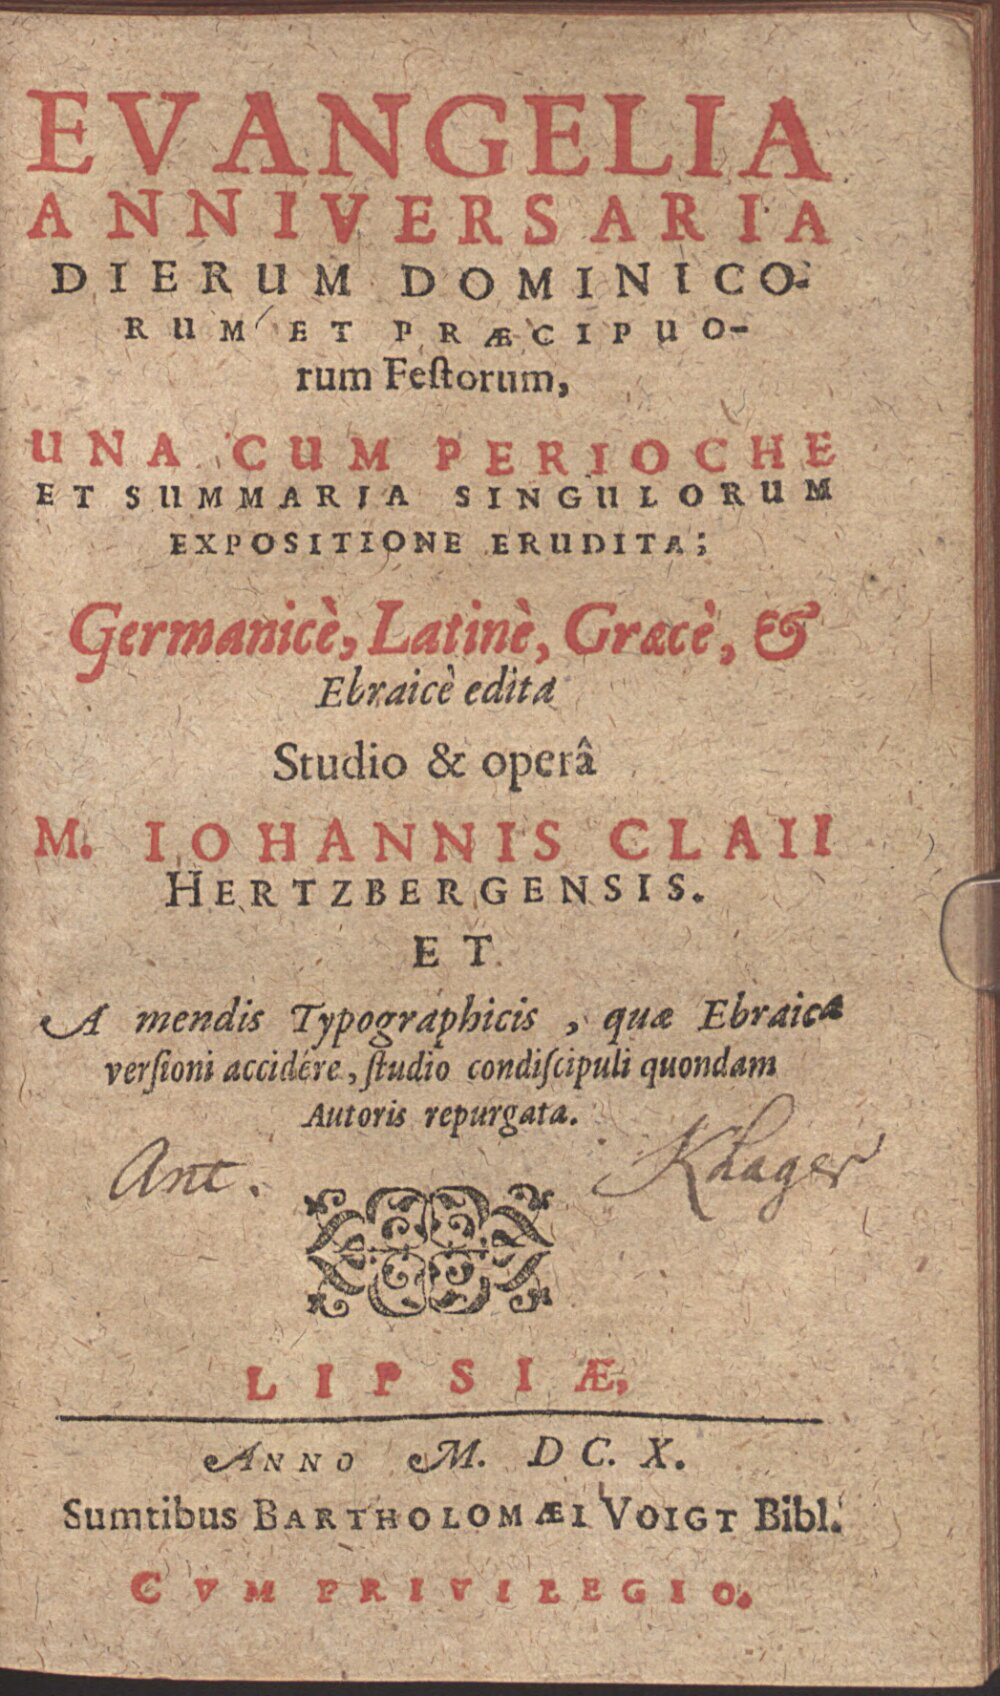 EVANGELIA
ANNIVERSARIA
DIERUM DOMINICO-
RUM ET PRÆCIPUO-
rum Feſtorum,
UNA CUM PERIOCHE
ET SUMMARIA SINGULORUM
EXPOSITIONE ERUDITA;
Germanicè, Latinè, Græcè, &
Ebraicè edita
Studio & operâ
M. IOHANNIS CLAII
HERTZBERGENSIS.
ET
A mendis Typographicis, quæ Ebraicæ
verſioni accidére, ſtudio condiſcipuli quondam
Autoris repurgata.
Ant.
LIPSIÆ,
ANNO M. DC. X.
Sumtibus BARTHOLOMÆI VOIGT Bibl.
CVM PRIVILEGIO.